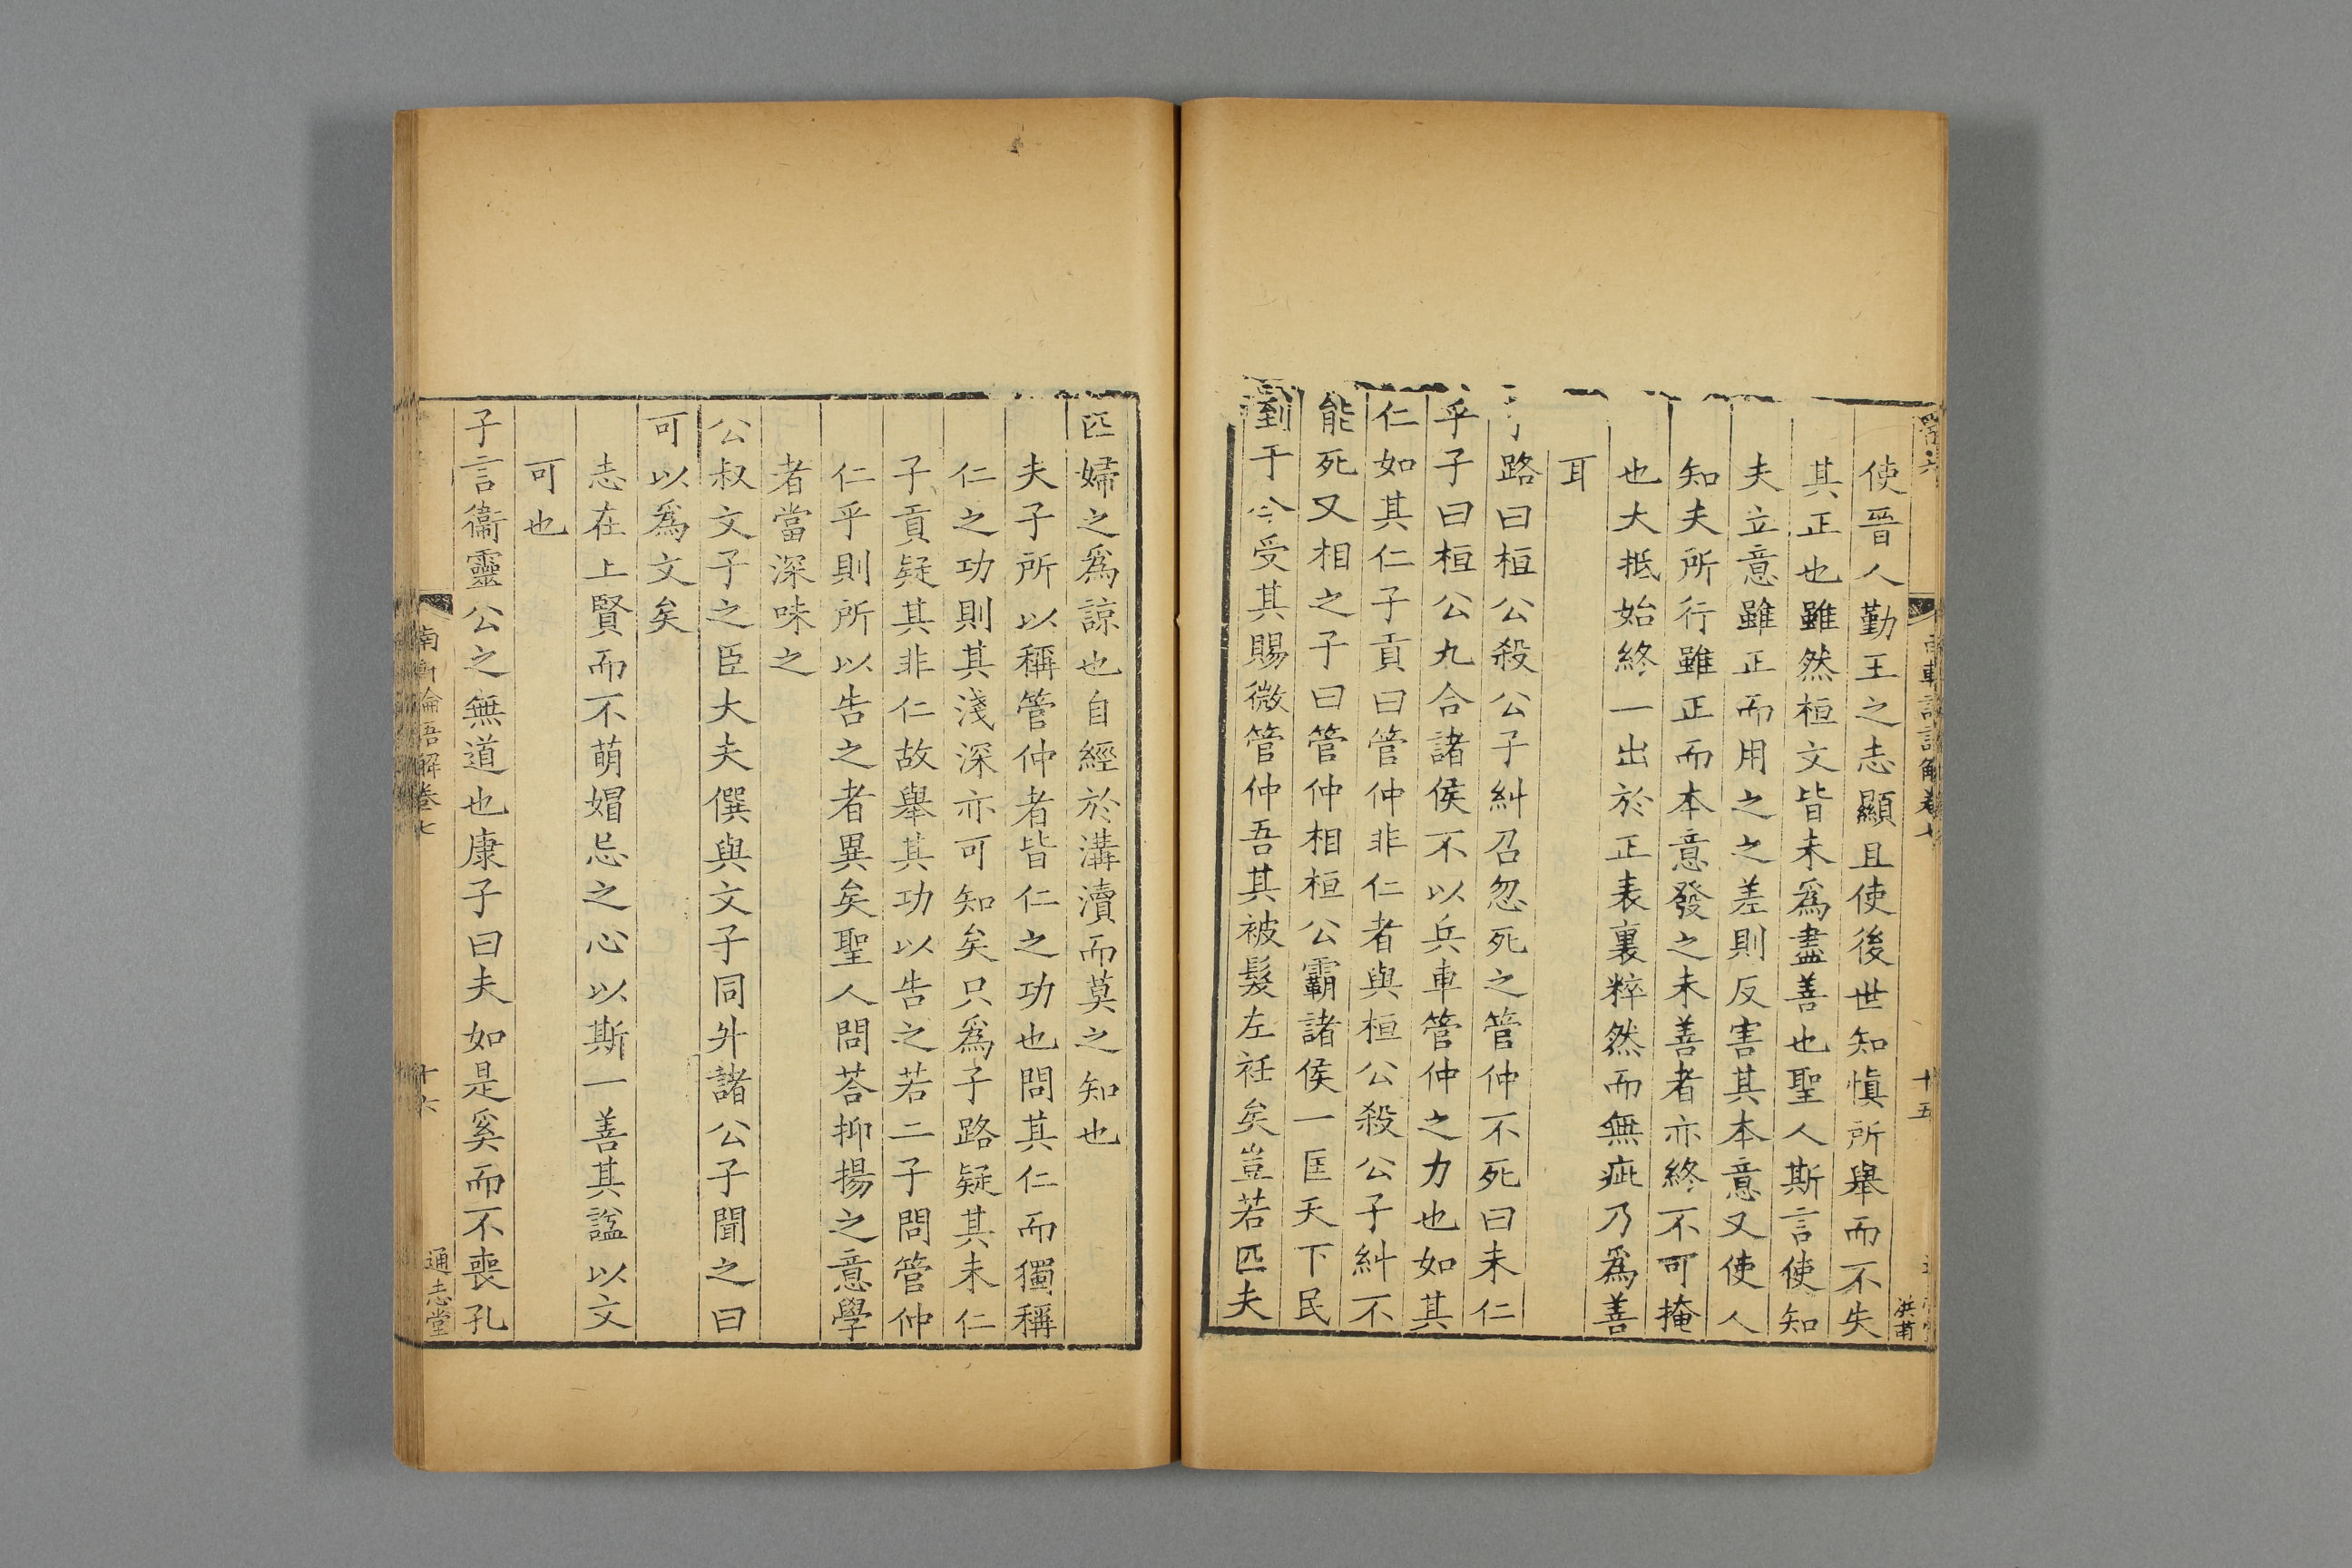 使晉人勤王之志顯且使後世知愼所舉而不失
其正也雖然桓文皆未爲盡善也聖人斯言使知
夫立意雖正而用之之差則反害其本意又使人
知夫所行雖正而本意發之未善者亦終不可掩
也大抵始終一出於正表裏粹然而無疵乃爲善
耳
路曰桓公殺公子糾召忽死之管仲不死曰未仁
乎子曰桓公九合諸侯不以兵車管仲之力也如其
仁如其仁子貢曰管仲非仁者與桓公殺公子糾不
能死又相之子曰管仲相桓公霸諸侯一匡天下民
到于今受其賜微管仲吾其被髮左衽矣豈若匹夫
十五
洪甫
匹婦之爲諒也自經於溝瀆而莫之知也
夫子所以稱管仲者皆仁之功也問其仁而獨稱
仁之功則其淺深亦可知矣只爲子路疑其未仁
子貢疑其非仁故舉其功以告之若二子問管仲
仁乎則所以告之者異矣聖人問荅抑揚之意學
者當深味之
公叔文子之臣大夫僎與文子同升諸公子聞之曰
可以爲文矣
志在上賢而不萌媢忌之心以斯一善其諡以文
可也
子言衞靈公之無道也康子曰夫如是奚而不喪孔
南軒論語解卷七
十六
通志堂